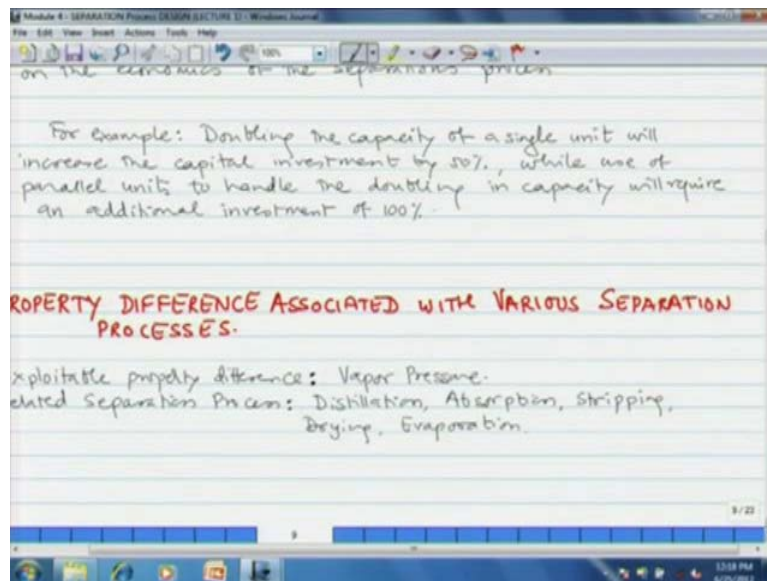 Module 4 - SEPARATION Process DESIGN (LECTURE 1) - Windows Journal
File Edit View Insert Actions Tools Help
100%
on the economics of the separations process
For example: Doubling the capacity of a single unit will
increase the capital investment by 50%, while use of
parallel units to handle the doubling in capacity will require
an additional investment of 100%.
ROPERTY DIFFERENCE ASSOCIATED WITH VARIOUS SEPARATION
PROCESSES.
xploitable property difference: Vapor Pressure.
elated Separation Process: Distillation, Absorption, Stripping,
Drying, Evaporation.
9/22
9
12:18 PM